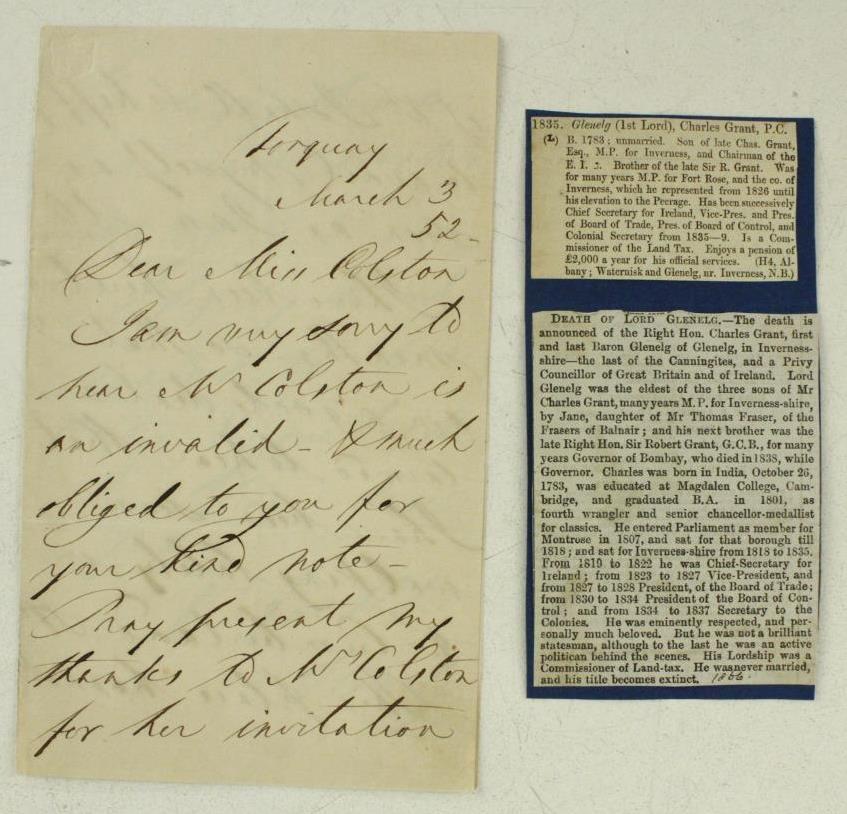 Torquay
March 3
52-
Dear Miss Colston
I am very sorry to
hear Mr Colston is
an invalid - & much
obliged to you for
your kind note -
Pray present my
thanks to Mrs Colston
for her invitation
1835. Glenelg (1st Lord), Charles Grant, P.C.
(L) B. 1783; unmarried. Son of late Chas. Grant,
Esq., M.P. for Inverness, and Chairman of the
E. I. C. Brother of the late Sir R. Grant. Was
for many years M.P. for Fort Rose, and the co. of
Inverness, which he represented from 1826 until
his elevation to the Peerage. Has been successively
Chief Secretary for Ireland, Vice-Pres. and Pres.
of Board of Trade, Pres. of Board of Control, and
Colonial Secretary from 1835—9. Is a Com-
missioner of the Land Tax. Enjoys a pension of
£2,000 a year for his official services. (H4, Al-
bany; Waternisk and Glenelg, nr. Inverness, N.B.)
DEATH OF LORD GLENELG.—The death is
announced of the Right Hon. Charles Grant, first
and last Baron Glenelg of Glenelg, in Inverness-
shire—the last of the Canningites, and a Privy
Councillor of Great Britain and of Ireland. Lord
Glenelg was the eldest of the three sons of Mr
Charles Grant, many years M.P. for Inverness-shire,
by Jane, daughter of Mr Thomas Fraser, of the
Frasers of Balnair; and his next brother was the
late Right Hon. Sir Robert Grant, G.C.B., for many
years Governor of Bombay, who died in 1838, while
Governor. Charles was born in India, October 26,
1783, was educated at Magdalen College, Cam-
bridge, and graduated B.A. in 1801, as
fourth wrangler and senior chancellor-medallist
for classics. He entered Parliament as member for
Montrose in 1807, and sat for that borough till
1818; and sat for Inverness-shire from 1818 to 1835.
From 1819 to 1822 he was Chief-Secretary for
Ireland; from 1823 to 1827 Vice-President, and
from 1827 to 1828 President, of the Board of Trade;
from 1830 to 1834 President of the Board of Con-
trol; and from 1834 to 1837 Secretary to the
Colonies. He was eminently respected, and per-
sonally much beloved. But he was not a brilliant
statesman, although to the last he was an active
politican behind the scenes. His Lordship was a
Commissioner of Land-tax. He was never married,
and his title becomes extinct. 1866.